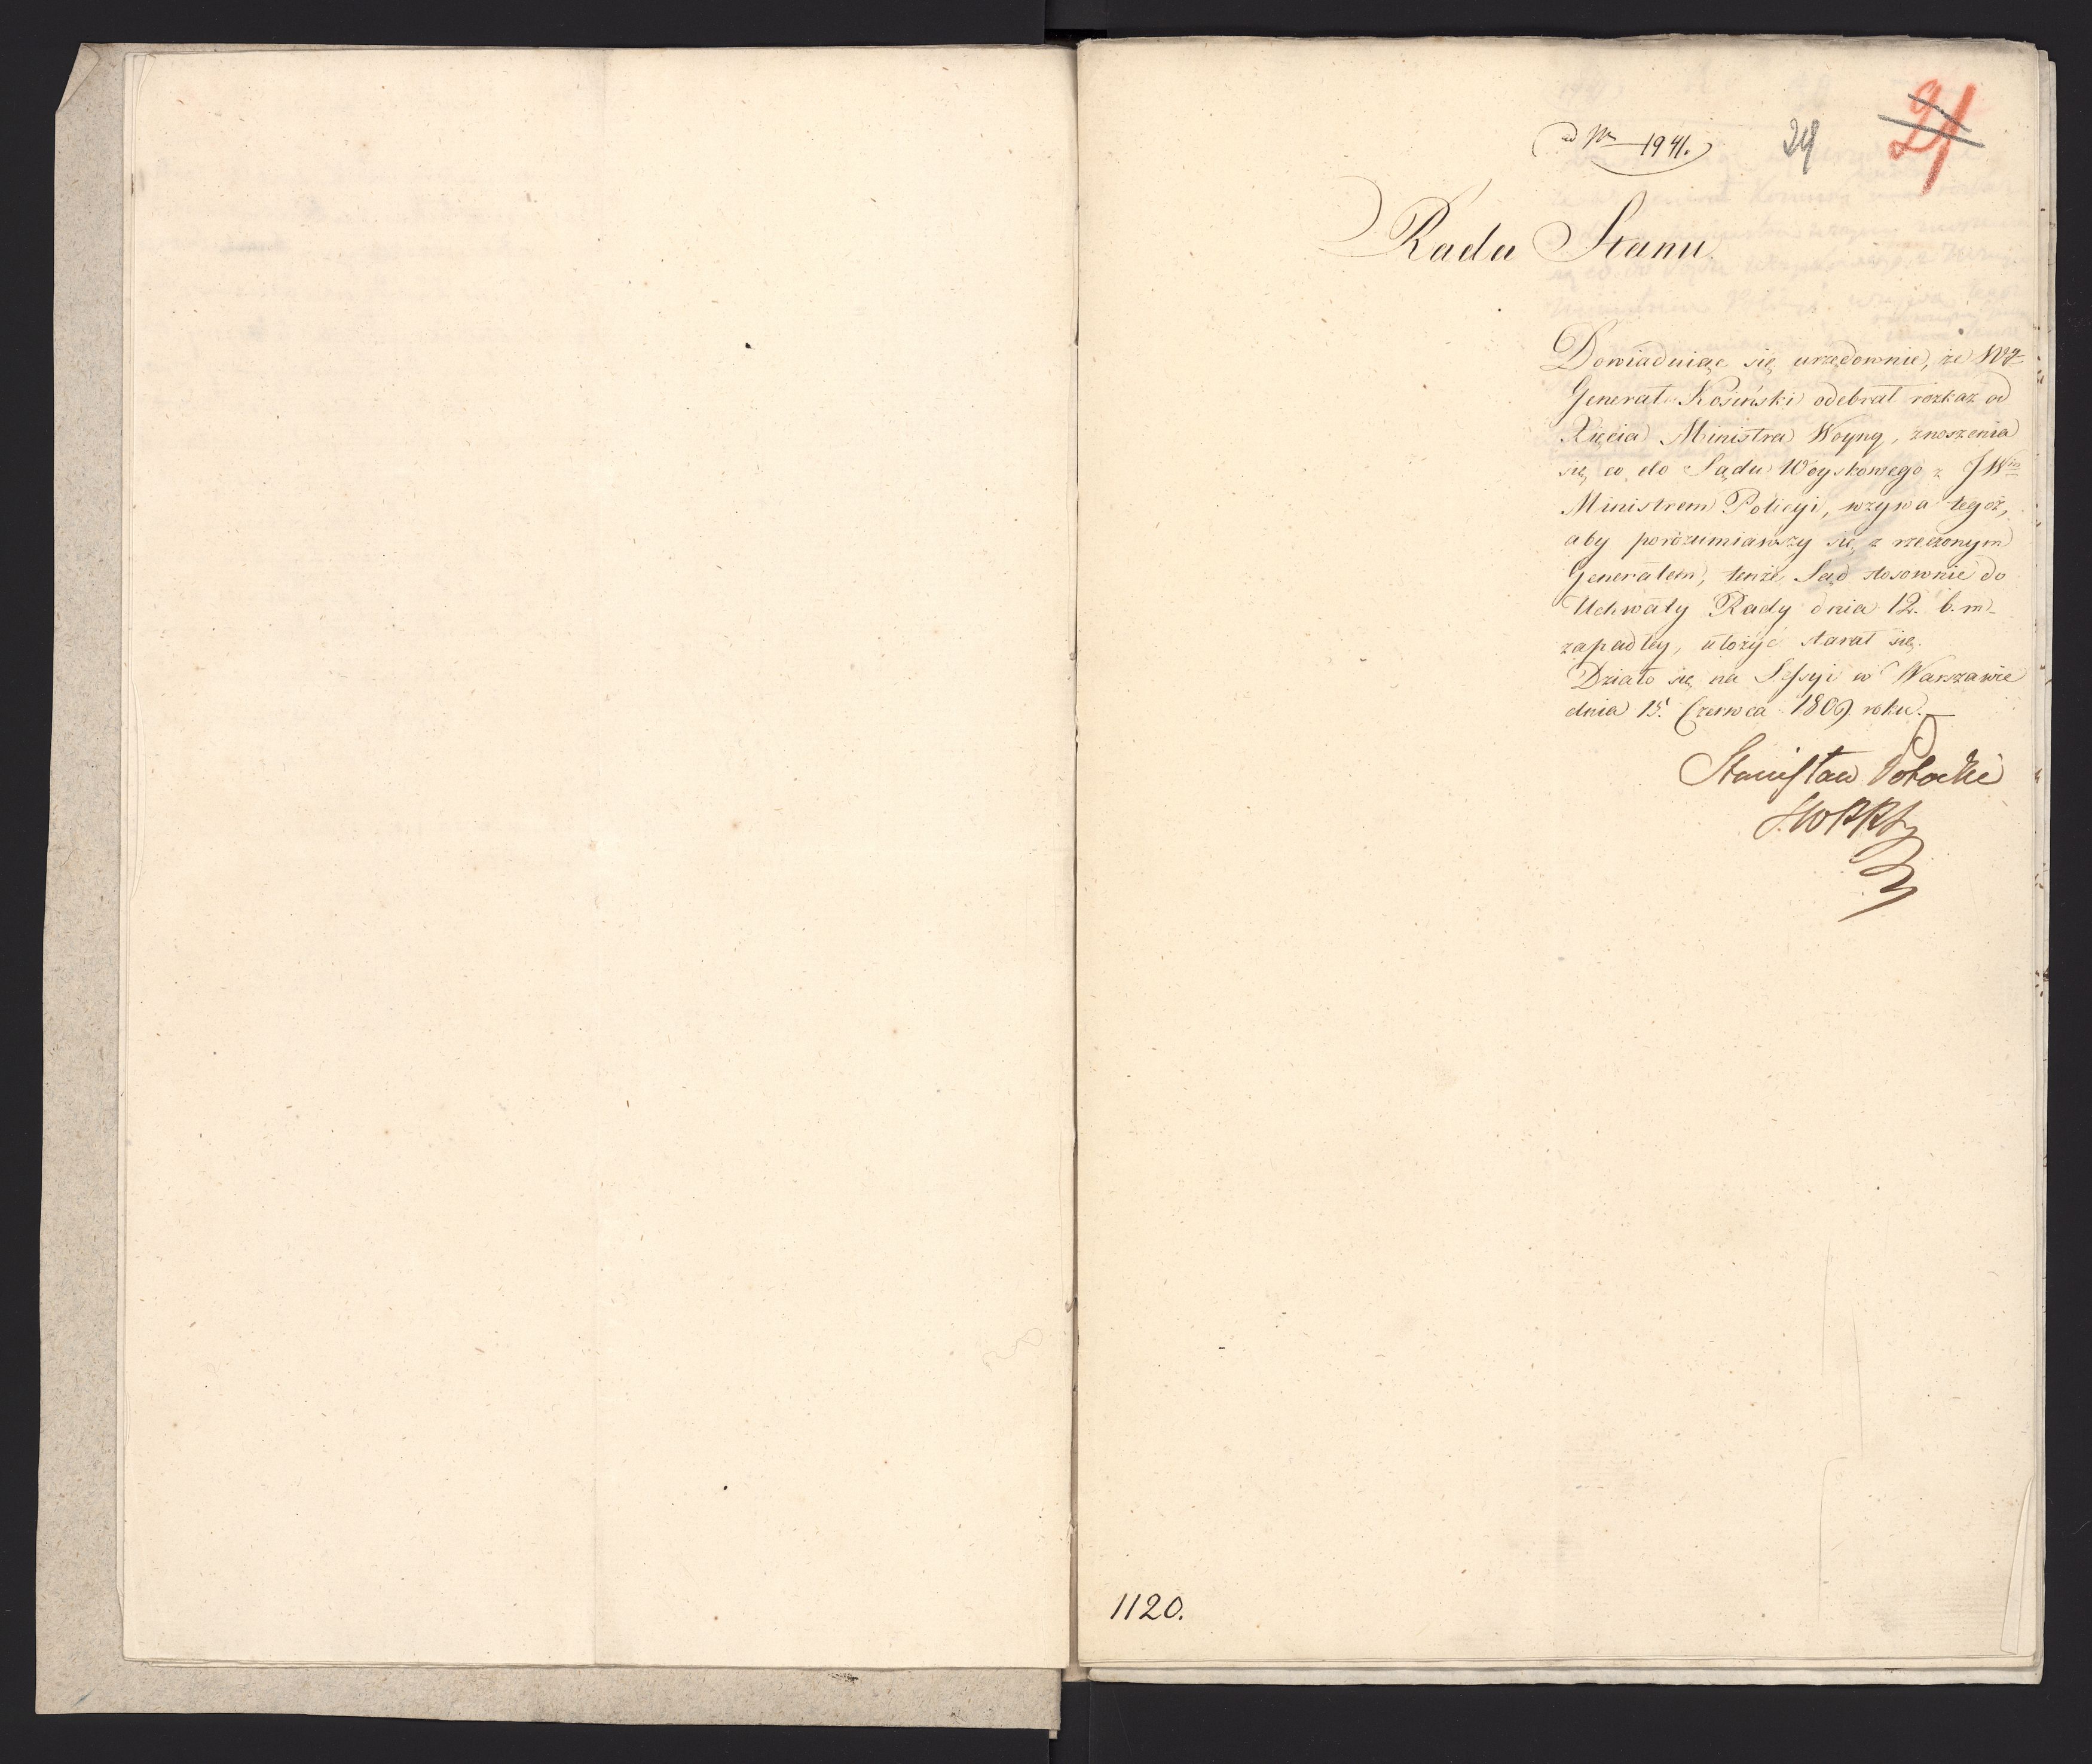 ad Nr 1941.
24
21
Rada Stanu
Dowiaduiąc się urzędownie, że Wg
Generał Kosiński odebrał rozkaz od
Xięcia Ministra Woyny, znoszenia
się co do Sądu Woyskowego z JWm
Ministrem Policyi, wzywa tegoż,
aby porozumiawszy się z rzeczonym
Generałem, tenże Sąd stosownie do
Uchwały Rady dnia 12. b. m.
zapadłey, ułożyć starał się.
Działo się na Sessyi w Warszawie
dnia 15. Czerwca 1809 roku.
Stanisław Potocki
1120.